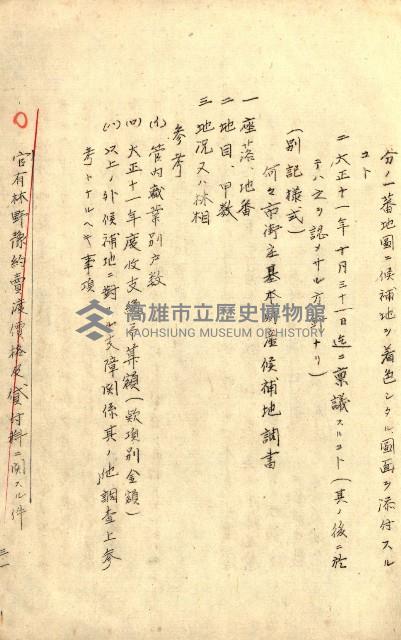 分ノ一蕃地圖ニ候補地ヲ着色シタル圖面ヲ添付スル
コト
二 大正十一年十月三十一日迄ニ稟議スルコト(其ノ後ニ於
テハ之ヲ認メサル方針ナリ)
(別記様式)
何々市街庄基本財産候補地調書
一 座落、地番
二 地目、甲数
三 地況又ハ林相
参考
(イ) 管内職業別戸数
(ロ) 大正十一年度收支豫算額(款項別金額)
(ハ) 以上ノ外候補地ニ對スル支障関係其ノ他調査上参
考トナルヘキ事項
官有林野豫約賣渡價格及貸付料ニ関スル件
三一
高雄市立歷史博物館
KAOHSIUNG MUSEUM OF HISTORY